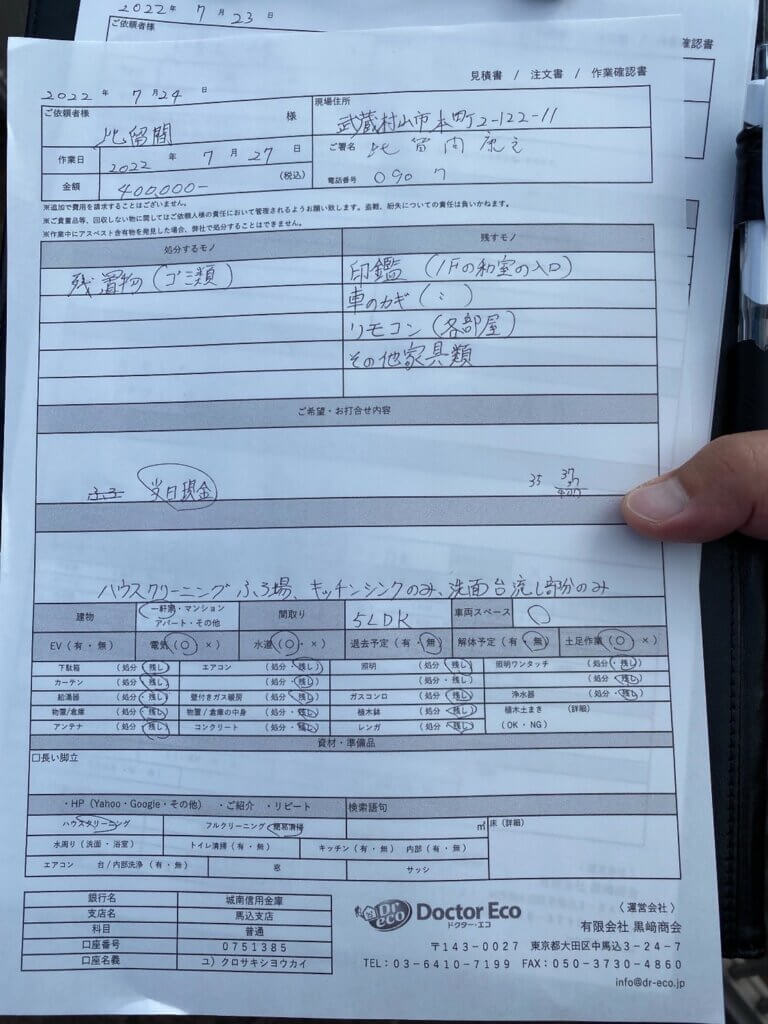 2022年 7月23日
ご依頼者様
確認書
見積書 / 注文書 / 作業確認書
2022年 7月24日
ご依頼者様 比留間 様
現場住所 武蔵村山市本町2-122-11
作業日 2022年 7月27日
ご署名 比留間
金額 400,000- (税込)
電話番号 090 7
※追加で費用を請求することはございません。
※ご貴重品等、回収しない物に関してはご依頼人様の責任において管理されるようお願い致します。盗難、紛失についての責任は負いかねます。
※作業中にアスベスト含有物を発見した場合、弊社で処分することはできません。
処分するモノ 残すモノ
残置物(ゴミ類) 印鑑(1Fの和室の入口)
車のカギ(〃)
リモコン(各部屋)
その他家具類
ご希望・お打合せ内容
ふろ 当日現金 35 37
ハウスクリーニング ふろ場、キッチンシンクのみ、洗面台流し部分のみ
建物 一軒家・マンション アパート・その他 間取り 5LDK 車両スペース ○
EV(有・無) 電気(○・×) 水道(○・×) 退去予定(有・無) 解体予定(有・無) 土足作業(○・×)
下駄箱 (処分・残し) エアコン (処分・残し) 照明 (処分・残し) 照明ワンタッチ (処分・残し)
カーテン (処分・残し) (処分・残し) (処分・残し) (処分・残し)
給湯器 (処分・残し) 壁付きガス暖房 (処分・残し) ガスコンロ (処分・残し) 浄水器 (処分・残し)
物置/倉庫 (処分・残し) 物置/倉庫の中身 (処分・残し) 植木鉢 (処分・残し) 植木土まき (詳細)
アンテナ (処分・残し) コンクリート (処分・残し) レンガ (処分・残し) (OK・NG)
資材・準備品
□長い脚立
・HP(Yahoo・Google・その他) ・ご紹介 ・リピート 検索語句
ハウスクリーニング フルクリーニング・簡易清掃 ㎡ 床(詳細)
水周り(洗面・浴室) トイレ清掃(有・無) キッチン(有・無) 内部(有・無)
エアコン 台/内部洗浄(有・無) 窓 サッシ
銀行名 城南信用金庫
支店名 馬込支店
科目 普通
口座番号 0751385
口座名義 ユ)クロサキシヨウカイ
Dr eco Doctor Eco
ドクター・エコ
〈運営会社〉
有限会社 黒﨑商会
〒143-0027 東京都大田区中馬込3-24-7
TEL:03-6410-7199 FAX:050-3730-4860
info@dr-eco.jp